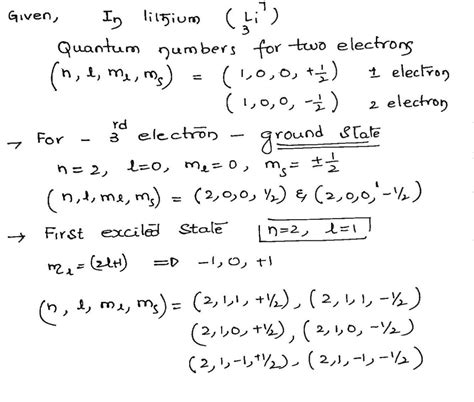 Given, In lithium (₃Li⁷)
Quantum numbers for two electrons
(n, l, mₗ, mₛ) = (1, 0, 0, +1/2) 1 electron
(1, 0, 0, -1/2) 2 electron
→ For - 3rd electron - ground state
n=2, l=0, mₗ=0, mₛ= ±1/2
(n, l, mₗ, mₛ) = (2, 0, 0, 1/2) & (2, 0, 0, -1/2)
→ First excited state n=2, l=1
mₗ = (2l+1) ⇒ -1, 0, +1
(n, l, mₗ, mₛ) = (2, 1, 1, +1/2), (2, 1, 1, -1/2)
(2, 1, 0, +1/2), (2, 1, 0, -1/2)
(2, 1, -1, +1/2), (2, 1, -1, -1/2)